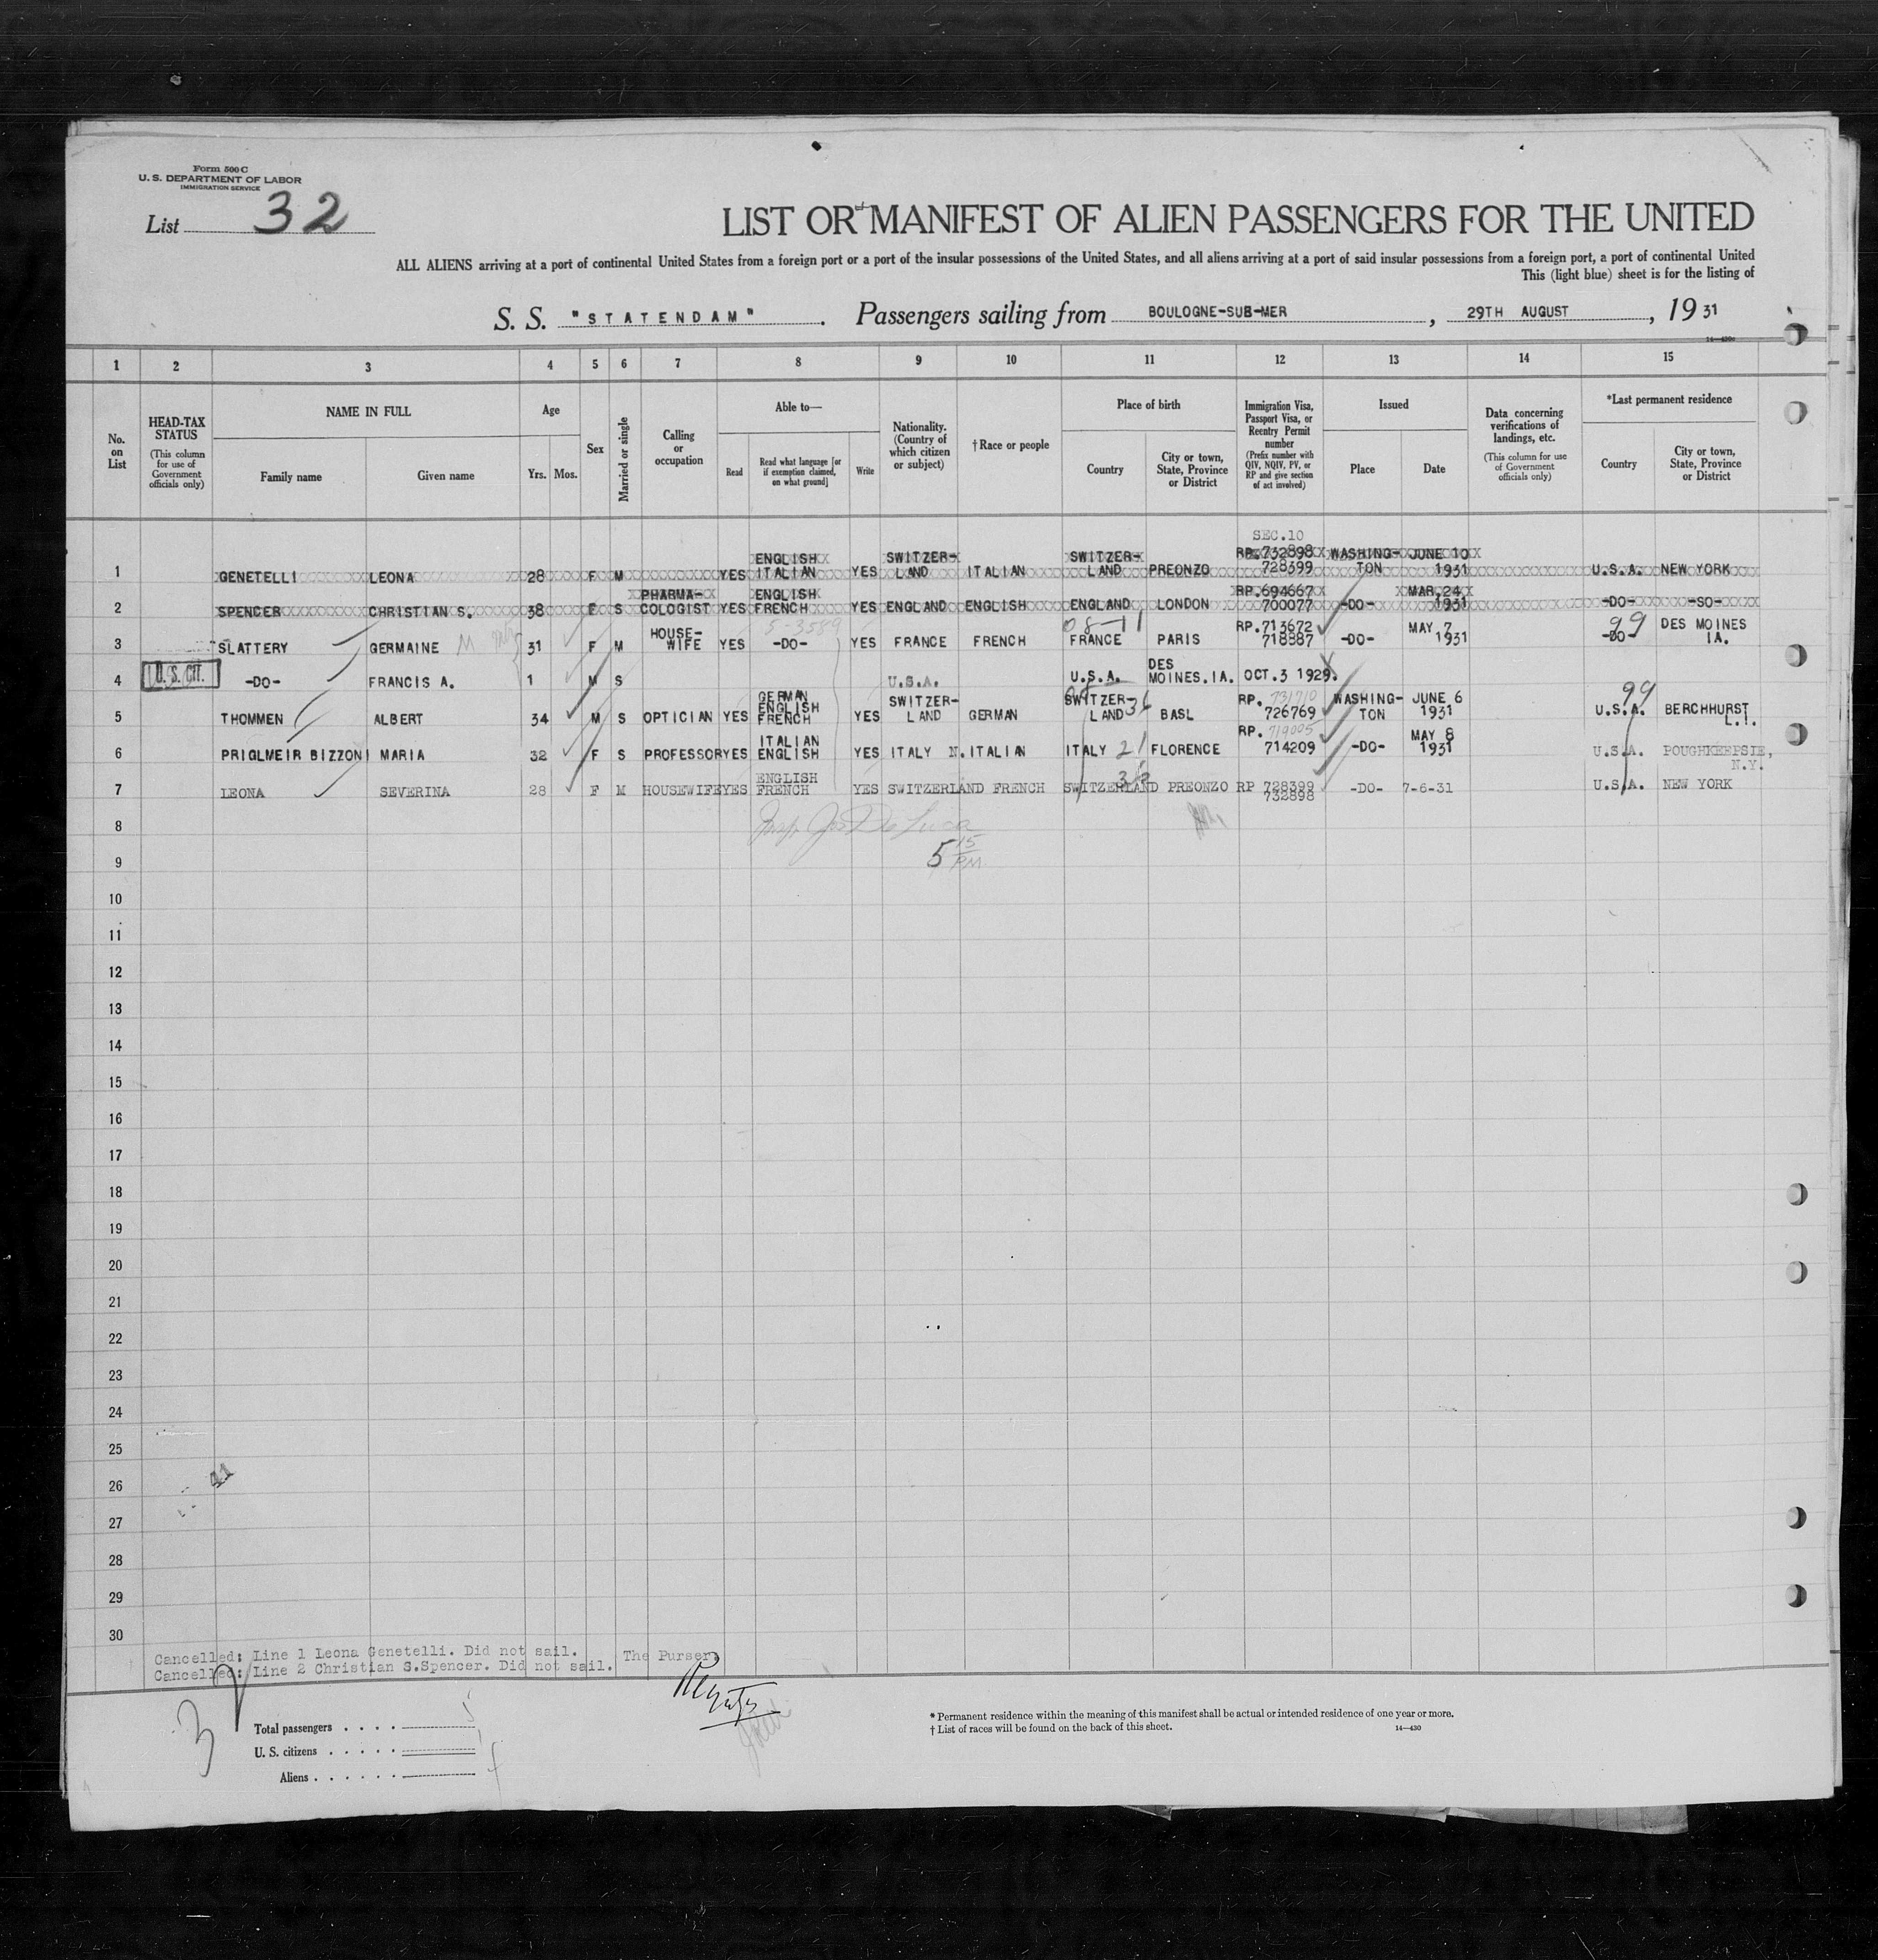 Form 500 C
U. S. DEPARTMENT OF LABOR
IMMIGRATION SERVICE
List 32
LIST OR MANIFEST OF ALIEN PASSENGERS FOR THE UNITED
ALL ALIENS arriving at a port of continental United States from a foreign port or a port of the insular possessions of the United States, and all aliens arriving at a port of said insular possessions from a foreign port, a port of continental United
This (light blue) sheet is for the listing of
S. S. "STATENDAM". Passengers sailing from BOULOGNE-SUB-MER, 29TH AUGUST, 1931
14—430
1 2 3 4 5 6 7 8 9 10 11 12 13 14 15
No. on List
HEAD-TAX STATUS (This column for use of Government officials only)
NAME IN FULL
Family name
Given name
Age
Yrs. Mos.
Sex
Married or single
Calling or occupation
Able to—
Read
Read what language [or if exemption claimed, on what ground]
Write
Nationality. (Country of which citizen or subject)
†Race or people
Place of birth
Country
City or town, State, Province or District
Immigration Visa, Passport Visa, or Reentry Permit number (Prefix number with QIV, NQIV, PV, or RP and give section of act involved)
Issued
Place
Date
Data concerning verifications of landings, etc. (This column for use of Government officials only)
*Last permanent residence
Country
City or town, State, Province or District
SEC.10
1 GENETELLI LEONA 28 F M YES ENGLISH ITALIAN YES SWITZER-LAND ITALIAN SWITZER-LAND PREONZO RP.732898 728399 WASHING-TON JUNE 10 1931 U.S.A. NEW YORK
2 SPENCER CHRISTIAN S. 38 F S PHARMA-COLOGIST YES ENGLISH FRENCH YES ENGLAND ENGLISH ENGLAND LONDON RP.694667 700077 -DO- MAR.24 1931 -DO- -SO-
5-3589 08-11 99
3 SLATTERY GERMAINE M 31 F M HOUSE-WIFE YES -DO- YES FRANCE FRENCH FRANCE PARIS RP.713672 718887 -DO- MAY 7 1931 -DO- DES MOINES IA.
4 U.S. CIT. -DO- FRANCIS A. 1 M S U.S.A. U.S.A. DES MOINES.IA. OCT.3 1929.
5 THOMMEN ALBERT 34 M S OPTICIAN YES GERMAN ENGLISH FRENCH YES SWITZER-LAND GERMAN SWITZER-LAND 36 BASL RP. 731710 726769 WASHING-TON JUNE 6 1931 99 U.S.A. BERCHHURST L.I.
6 PRIGLMEIR BIZZONI MARIA 32 F S PROFESSOR YES ITALIAN ENGLISH YES ITALY N.ITALIAN ITALY 21 FLORENCE RP. 719005 714209 -DO- MAY 8 1931 U.S.A. POUGHKEEPSIE, N.Y.
7 LEONA SEVERINA 28 F M HOUSEWIFE YES ENGLISH FRENCH YES SWITZERLAND FRENCH SWITZERLAND 36 PREONZO RP 728399 732898 -DO- 7-6-31 U.S.A. NEW YORK
8 Insp. Jos De Luca
9 5 15 PM
10
11
12
13
14
15
16
17
18
19
20
21
22
23
24
25
26
27
28
29
30
Cancelled: Line 1 Leona Genetelli. Did not sail. The Purser.
Cancelled: Line 2 Christian S.Spencer. Did not sail.
3
Total passengers . . . . 5
U. S. citizens . . . . . 1
Aliens . . . . . . 4
* Permanent residence within the meaning of this manifest shall be actual or intended residence of one year or more.
† List of races will be found on the back of this sheet.
14—430